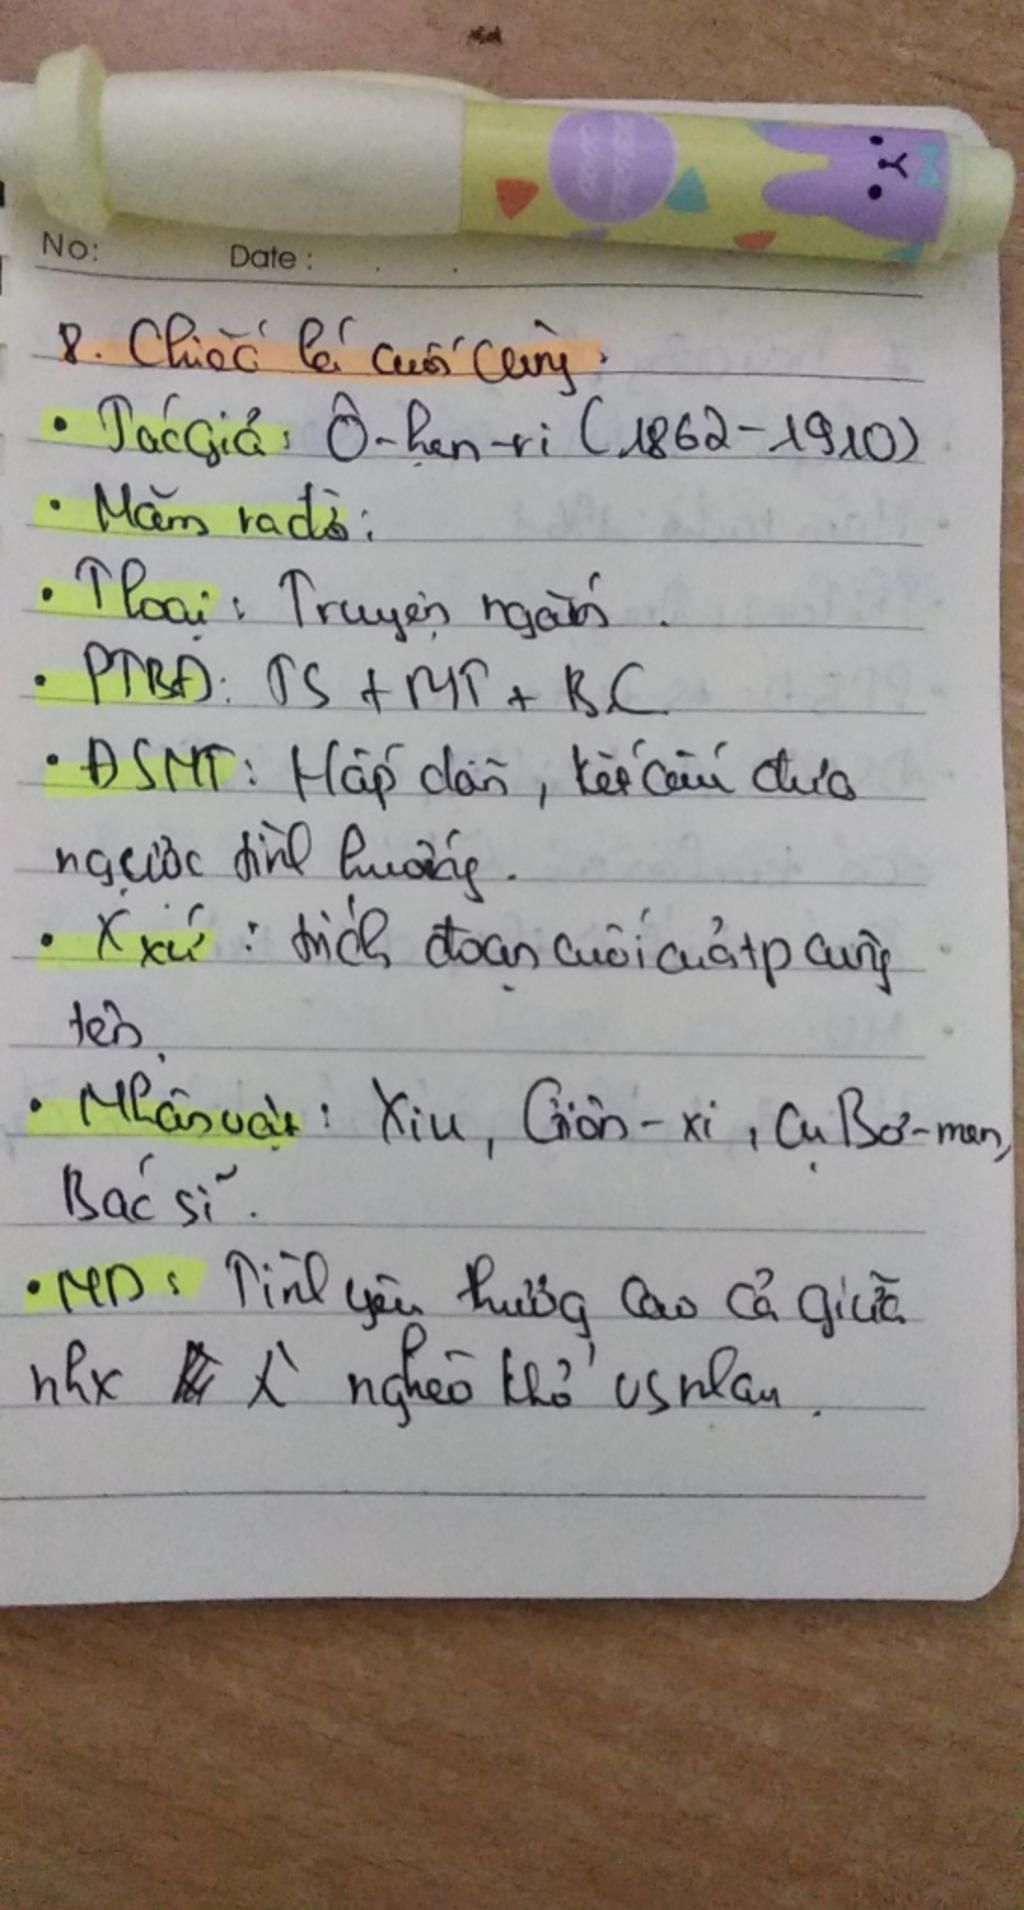 No: Date:
8. Chiếc lá cuối cùng.
• Tác giả: Ô-hen-ri (1862-1910)
• Năm ra đời:
• Thoại: Truyện ngắn.
• PTBĐ: TS + MT + BC
• ĐSNT: Hấp dẫn, kết cấu đưa
ngược tình huống.
• X xứ: trích đoạn cuối của tp cùng
tên.
• Nhân vật: Xiu, Giôn-xi, Cụ Bơ-men,
Bác sĩ.
• ND: Tình yêu thương cao cả giữa
nhx nghèo khổ vs nhau.